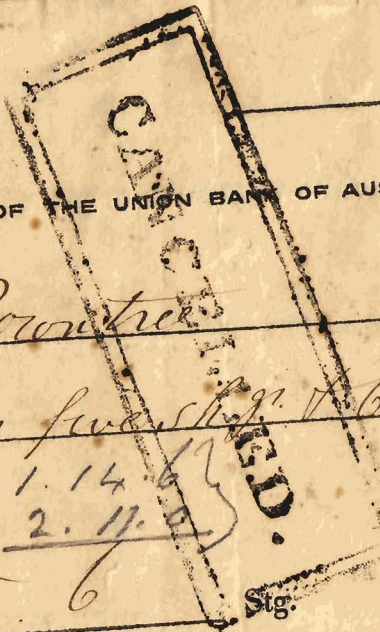 CANCELLED.
OF THE UNION BANK OF AUS
Rowntree
1. 14. 6
2. 11. 0
6
Stg.